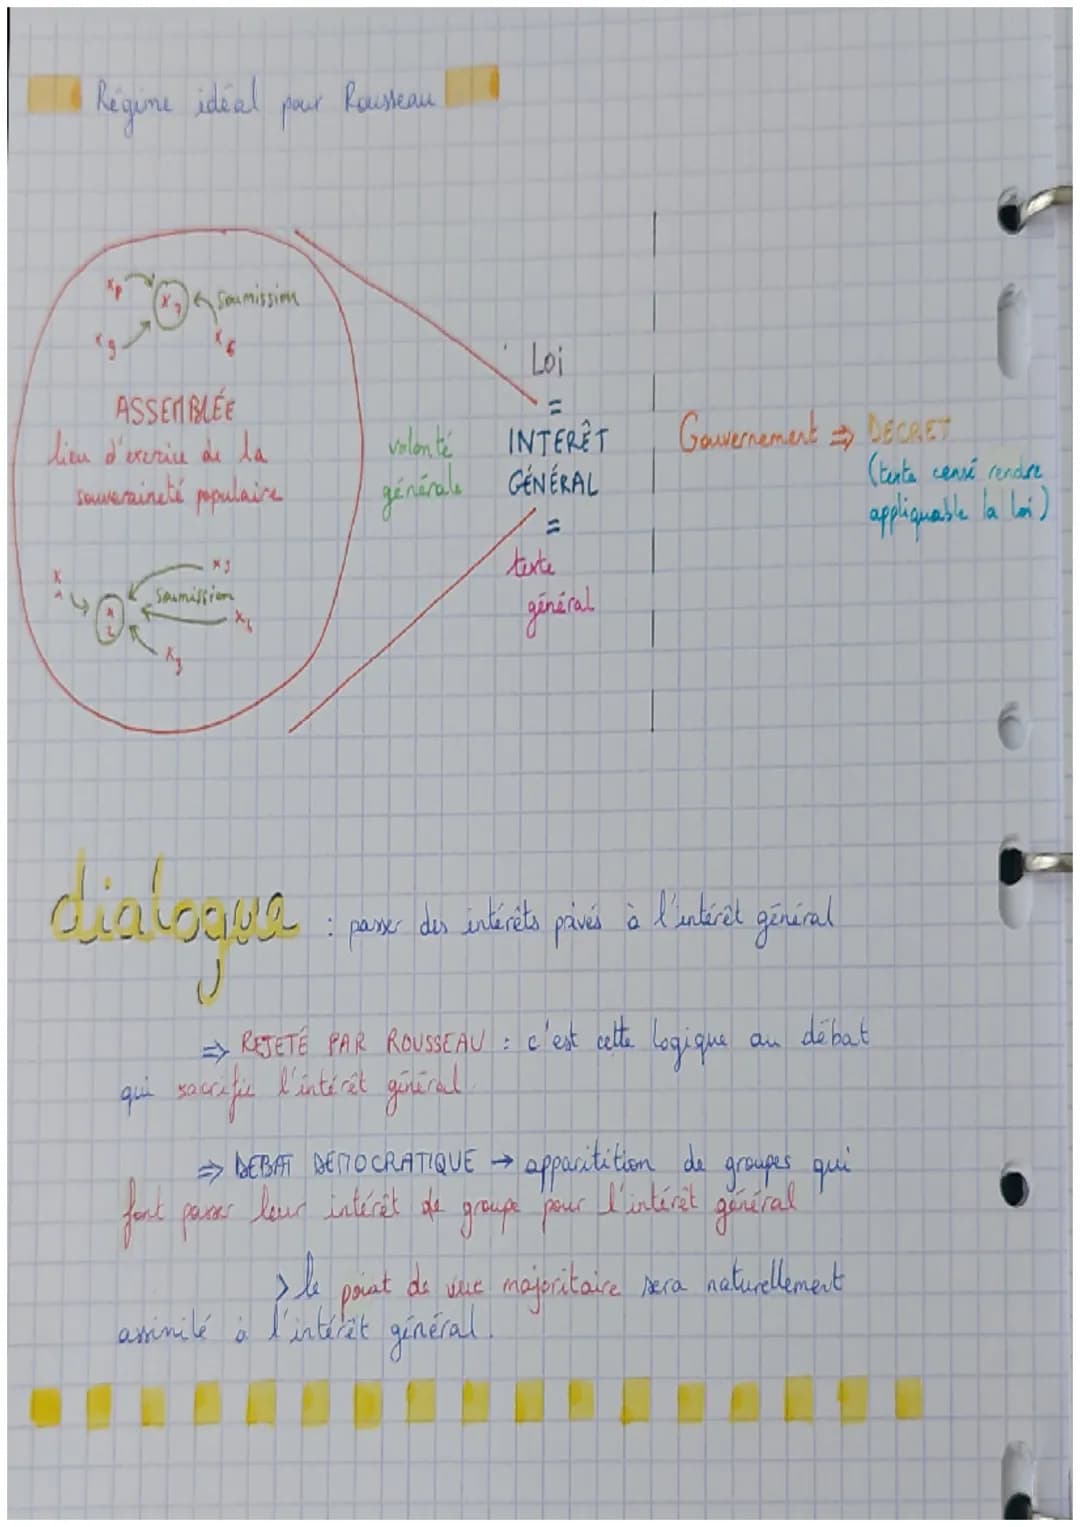 Régime idéal pour Rousseau
soumission
ASSEMBLÉE
lieu d'exercice de la
souveraineté populaire
soumission
volonté
générale
Loi
=
INTERÊT
GÉNÉRAL
=
texte
général
Gouvernement ⇒ DECRET
(texte censé rendre
appliquable la loi)
dialogue : passer des intérêts privés à l'intérêt général
⇒ REJETÉ PAR ROUSSEAU : c'est cette logique au débat
qui sacrifie l'intérêt général.
⇒ DEBAT DEMOCRATIQUE → apparitition de groupes qui
font passer leur intérêt de groupe pour l'intérêt général
> le point de vue majoritaire sera naturellement
assimilé à l'intérêt général.